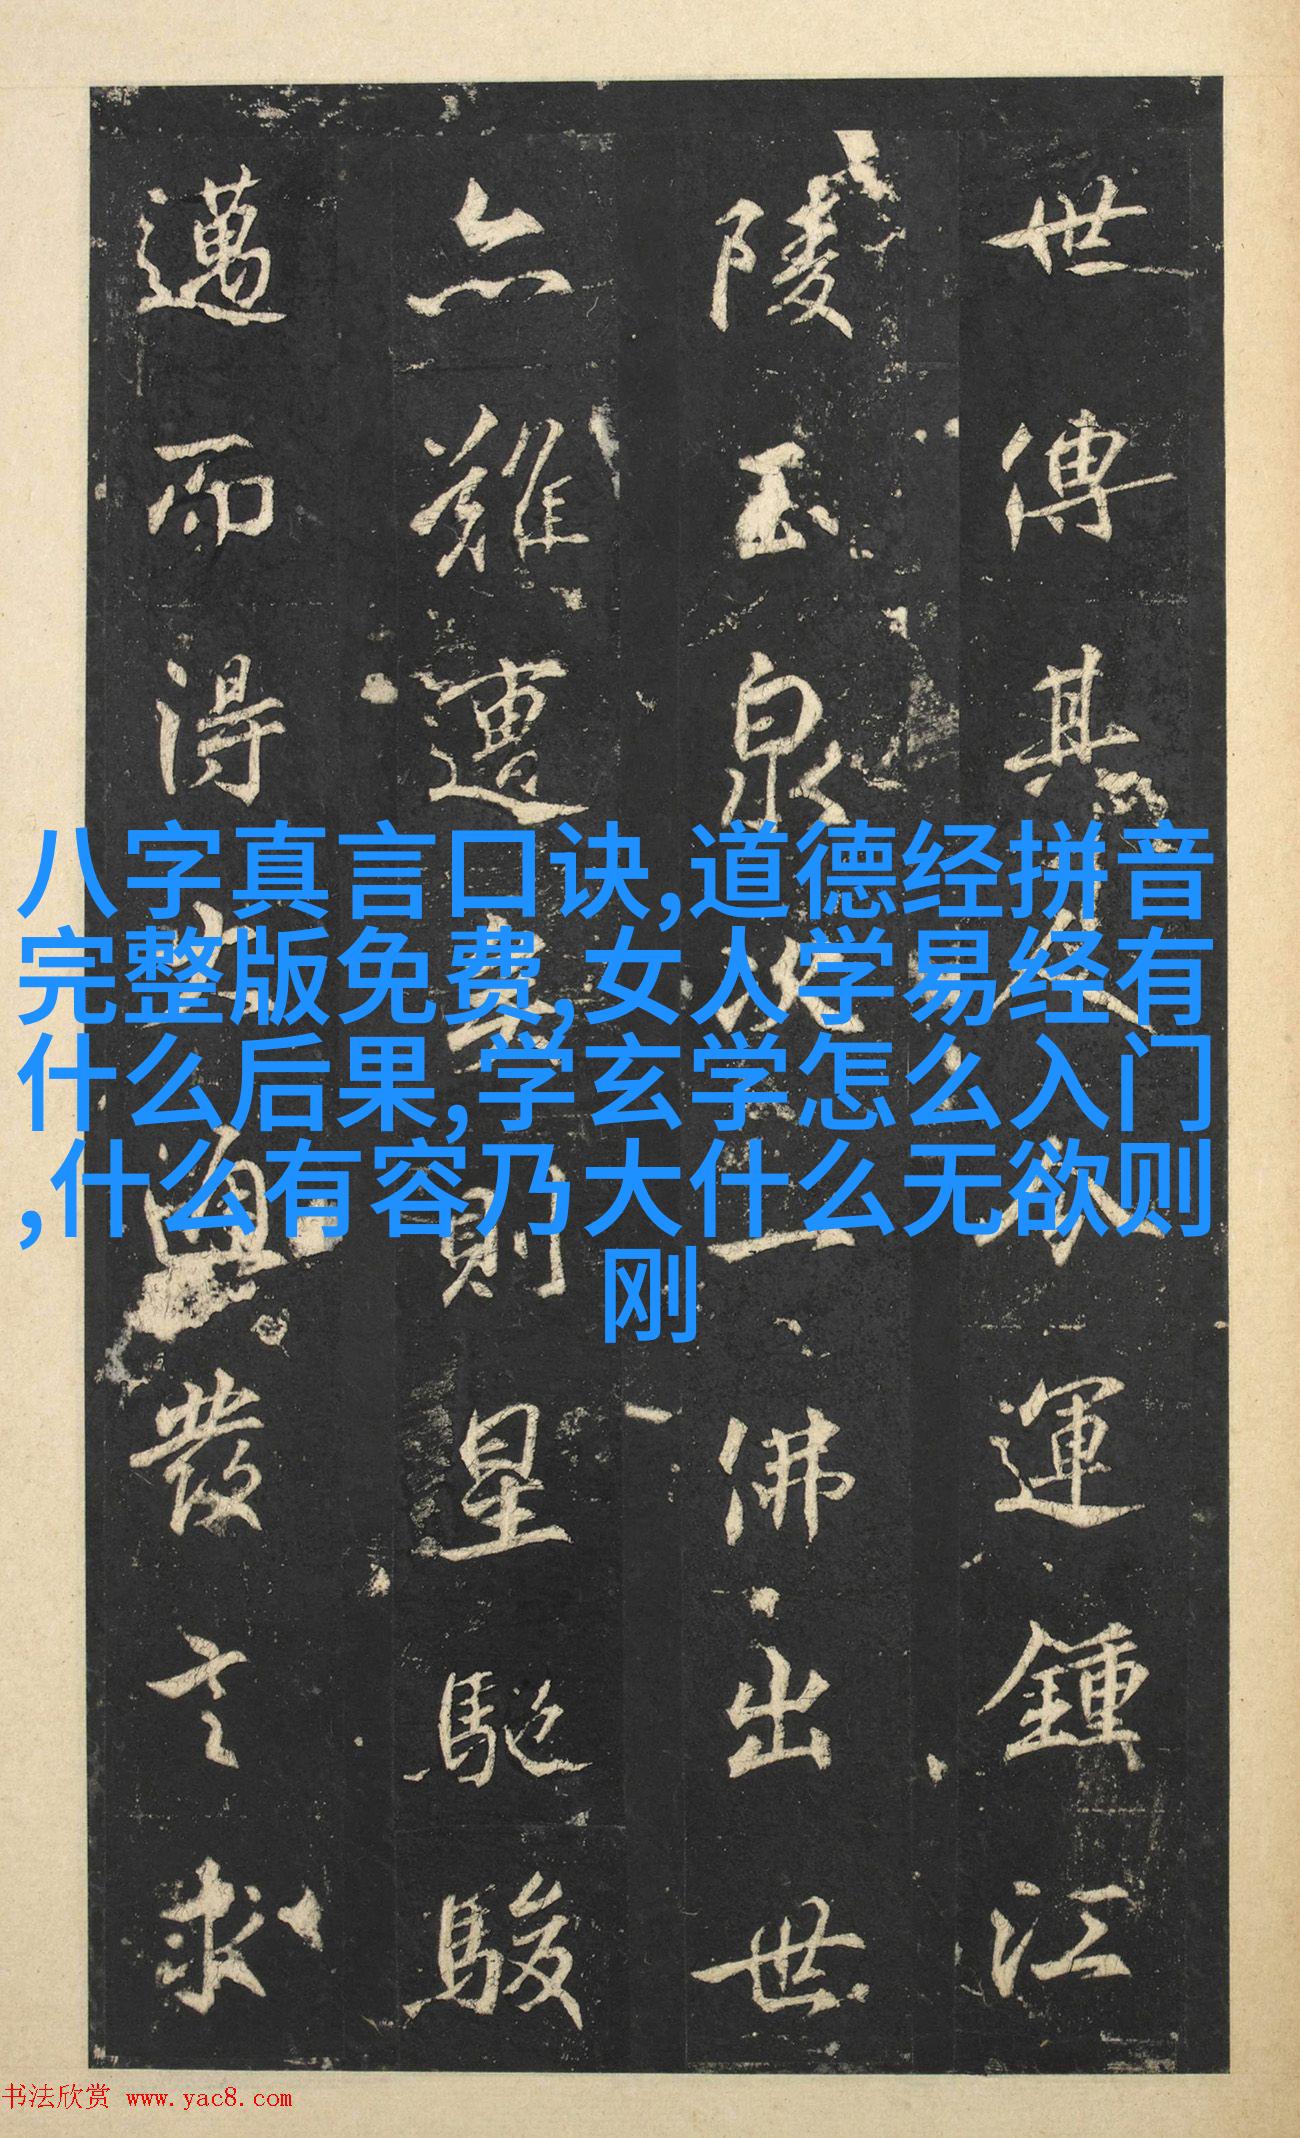 世傳其以运鍾江
陵玉泉次一佛出世
亦難遭玄則星馳驟
邁而得興發言求
八字真言口诀,道德经拼音
完整版免费,女人学易经有
什么后果,学玄学怎么入门
,什么有容乃大什么无欲则
刚
书法欣赏 www.yac8.com